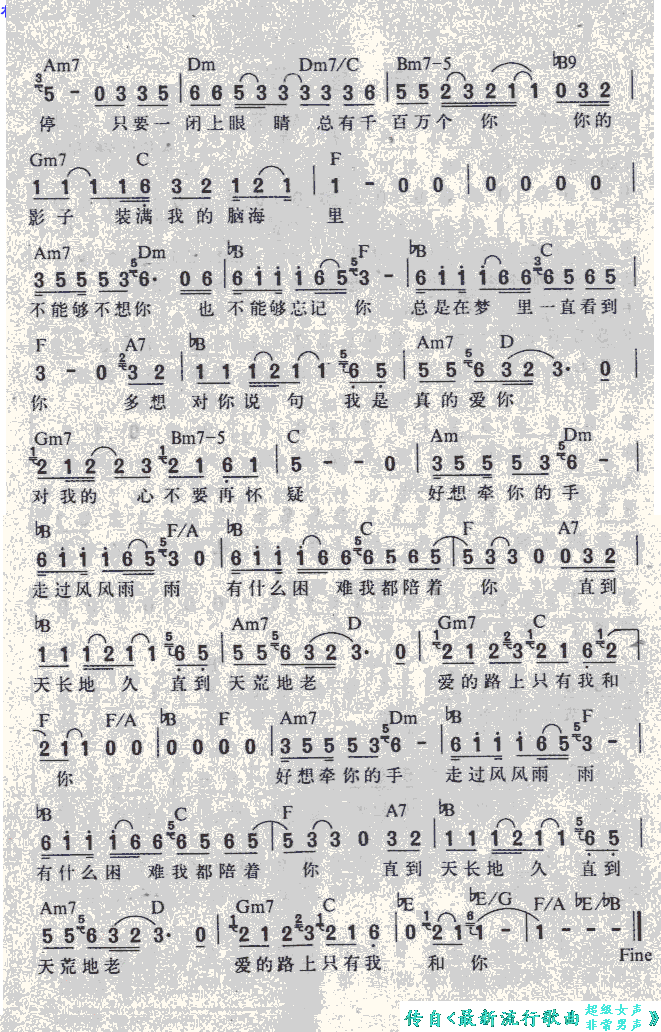 Am7 Dm Dm7/C Bm7-5 ♭B9
5 - 0 3 3 5 | 6 6 5 3 3 3 3 3 6 | 5 5 2 3 2 1 1 0 3 2 |
停 只要一 闭上眼 睛 总有千 百万个 你 你的
Gm7 C F
1 1 1 1 6 3 2 1 2 1 | 1 - 0 0 | 0 0 0 0 |
影子 装满我的脑海 里
Am7 Dm ♭B F ♭B C
3 5 5 5 3 6· 0 6 | 6 1 1 1 6 5 3 - | 6 1 1 1 6 6 6 5 6 5 |
不能够不想你 也 不能够忘记 你 总是在梦 里一直看到
F A7 ♭B Am7 D
3 - 0 3 2 | 1 1 1 2 1 1 6 5 | 5 5 6 3 2 3· 0 |
你 多想 对你说 句 我是 真的爱你
Gm7 Bm7-5 C Am Dm
2 1 2 2 3 2 1 6 1 | 5 - - 0 | 3 5 5 5 3 6 - |
对我的 心不要再怀 疑 好想牵你的手
♭B F/A ♭B C F A7
6 1 1 1 6 5 3 0 | 6 1 1 1 6 6 6 5 6 5 | 5 3 3 0 0 3 2 |
走过风风雨 雨 有什么困 难我都陪着 你 直到
♭B Am7 D Gm7 C
1 1 1 2 1 1 6 5 | 5 5 6 3 2 3· 0 | 2 1 2 3 2 1 6 2 |
天长地 久 直到 天荒地老 爱的路上只有我和
F F/A ♭B F Am7 Dm ♭B F
2 1 1 0 0 | 0 0 0 0 | 3 5 5 5 3 6 - | 6 1 1 1 6 5 3 - |
你 好想牵你的手 走过风风雨 雨
♭B C F A7 ♭B
6 1 1 1 6 6 6 5 6 5 | 5 3 3 0 3 2 | 1 1 1 2 1 1 6 5 |
有什么困 难我都陪着 你 直到 天长地 久 直到
Am7 D Gm7 C ♭E ♭E/G F/A ♭E/♭B
5 5 6 3 2 3· 0 | 2 1 2 3 2 1 6 | 0 2 1 1 - | 1 - - - ||
天荒地老 爱的路上只有我 和 你 Fine
传自<最新流行歌曲 超级女声 非常男声 》